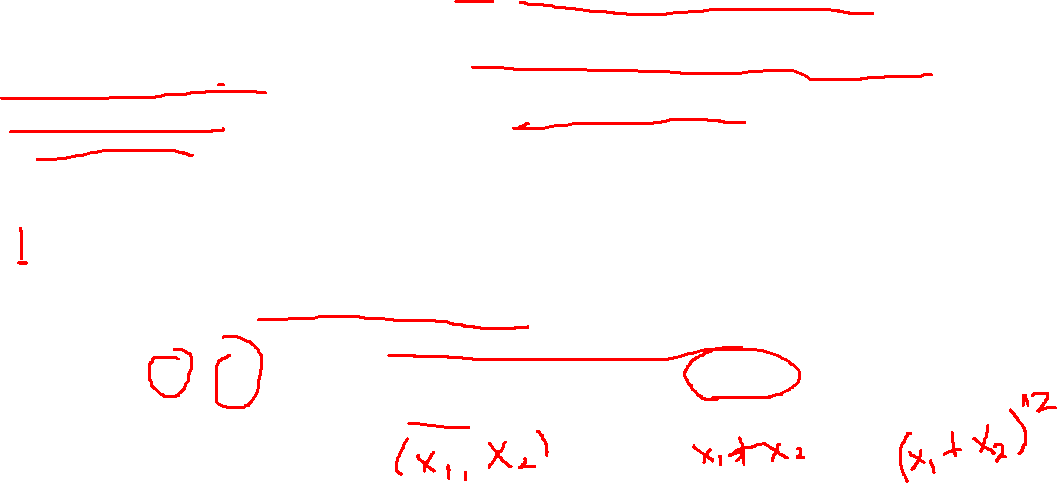 !
(x₁, x₂) x₁+x₂ (x₁+x₂)"2